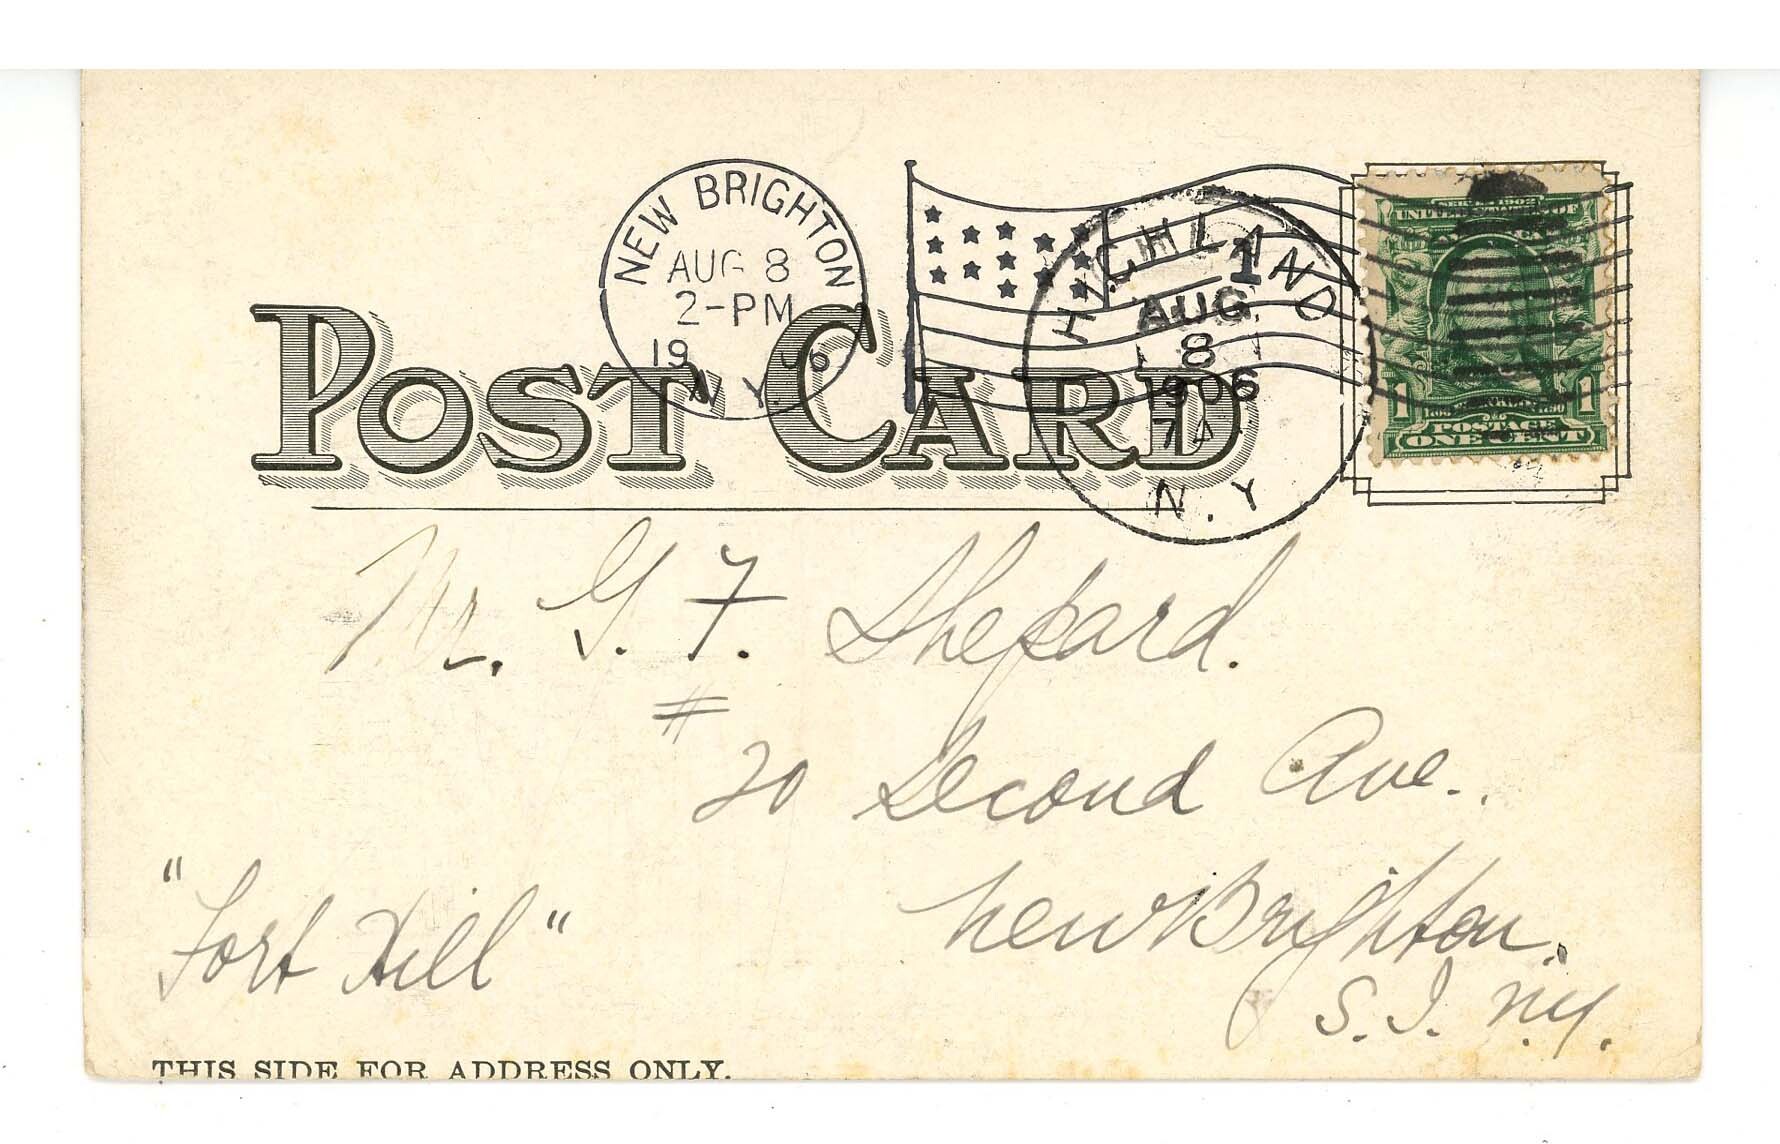 NEW BRIGHTON
AUG 8
2-PM
1906
N.Y.
HIGHLAND
1
AUG
8
1906
7 A
N.Y
SERIES 1902
UNITED STATES OF
AMERICA
1 1
POSTAGE
ONE CENT
POST CARD
Mr. G. F. Shepard.
#
20 Second Ave.
New Brighton.
S.I. N.Y.
"Fort Hill"
THIS SIDE FOR ADDRESS ONLY.